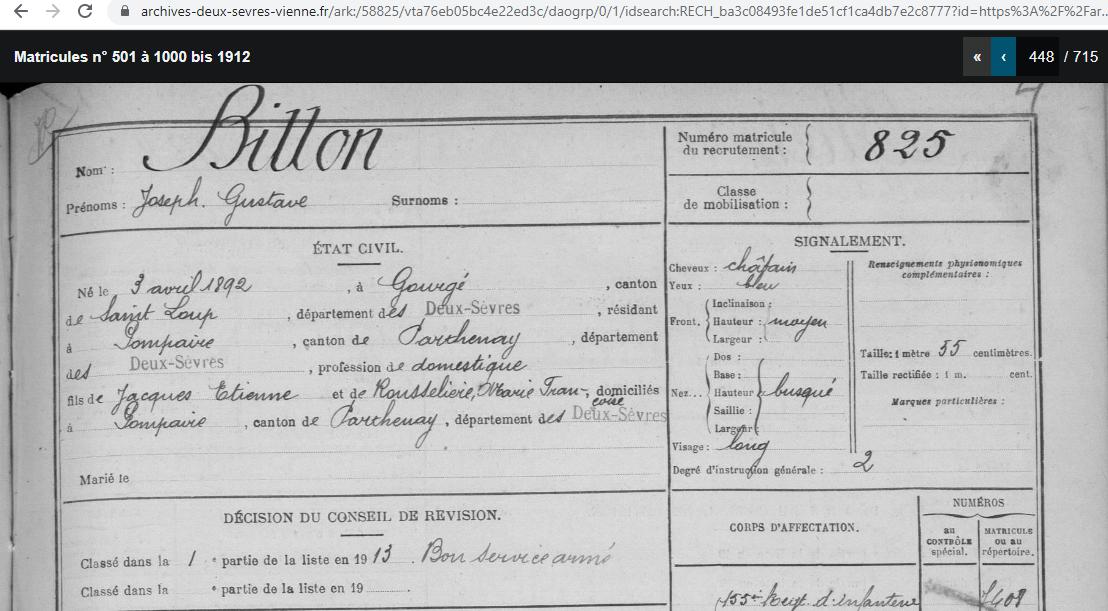 archives-deux-sevres-vienne.fr/ark:/58825/vta76eb05bc4e22ed3c/daogrp/0/1/idsearch:RECH_ba3c08493fe1de51cf1ca4db7e2c8777?id=https%3A%2F%2Far...
Matricules n° 501 à 1000 bis 1912
« ‹ 448 / 715
Nom : Billon
Prénoms : Joseph. Gustave Surnoms :
Numéro matricule du recrutement : 825
Classe de mobilisation :
ÉTAT CIVIL.
Né le 3 avril 1892, à Gourgé, canton
de Saint Loup, département des Deux-Sèvres, résidant
à Pompaire, canton de Parthenay, département
des Deux-Sèvres, profession de domestique
fils de Jacques Etienne et de Rousselière, Marie Fran-, domiciliés
çoise
à Pompaire, canton de Parthenay, département des Deux-Sèvres
Marié le
SIGNALEMENT.
Cheveux : châtain
Yeux : bleu
Front. Inclinaison :
Hauteur : moyen
Largeur :
Nez... Dos :
Base :
Hauteur busqué
Saillie :
Largeur :
Visage : long
Degré d'instruction générale : 2
Renseignements physionomiques
complémentaires :
Taille : 1 mètre 55 centimètres.
Taille rectifiée : 1 m. cent.
Marques particulières :
DÉCISION DU CONSEIL DE REVISION.
Classé dans la 1 e partie de la liste en 1913. Bon service armé
Classé dans la e partie de la liste en 19 .
CORPS D'AFFECTATION.
NUMÉROS
au CONTRÔLE spécial.
MATRICULE ou au répertoire.
155e Regt d'infanterie 7408